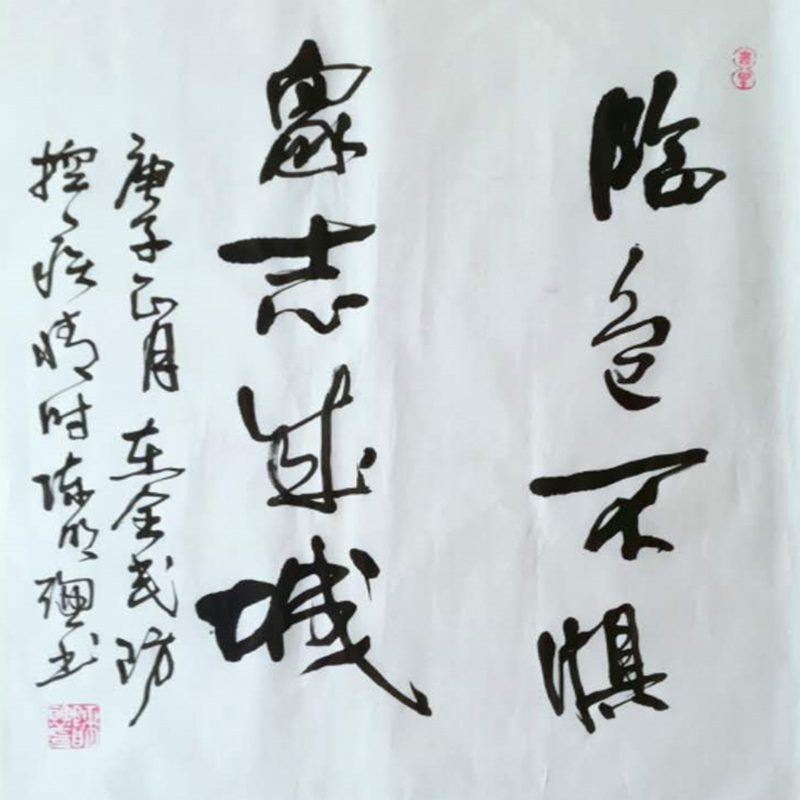 临危不惧
衆志成城
庚子正月在全民防
控疫情时陈明书